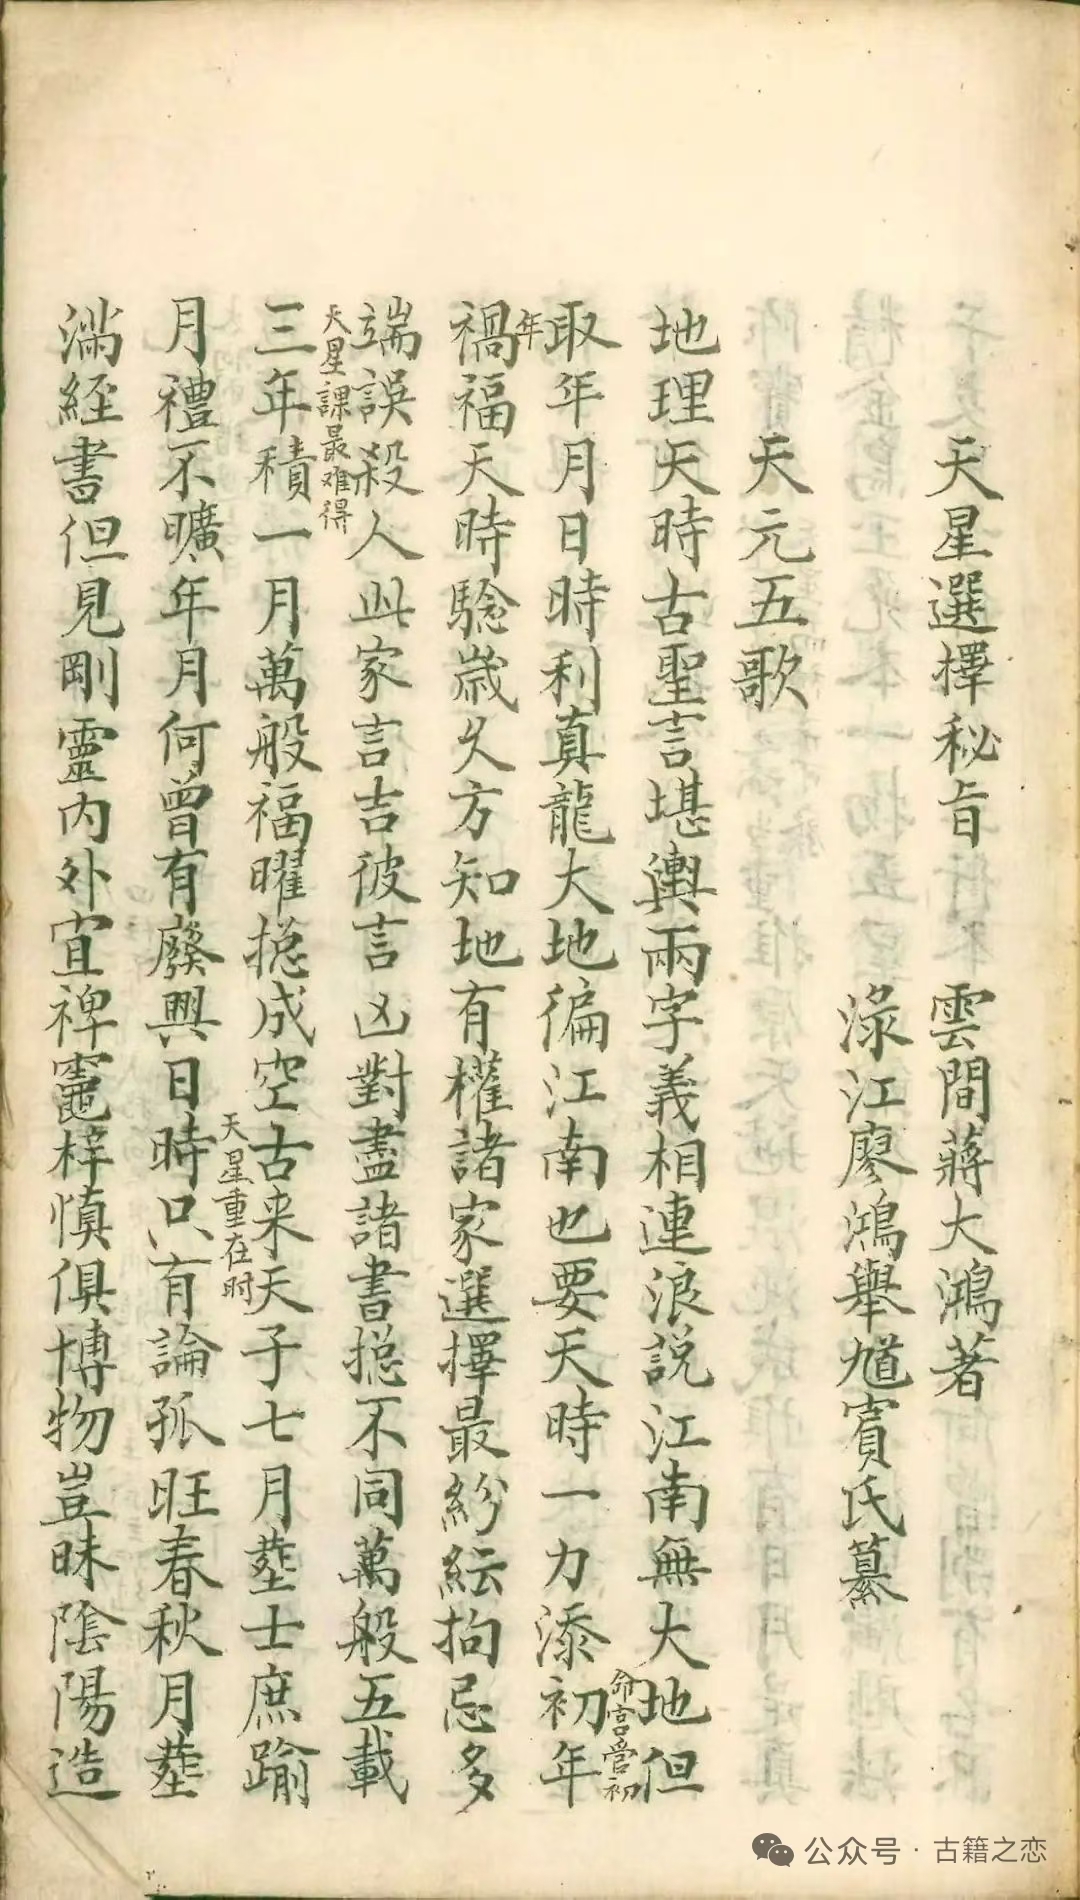 天星選擇秘旨 雲間蔣大鴻著
淥江廖鴻舉馗賓氏纂
天元五歌
地理天時古聖言堪輿兩字義相連浪説江南無大地但
取年月日時利真龍大地徧江南也要天時一力添初年
命宮管初
年
禍福天時驗歲久方知地有權諸家選擇最紛紜拘忌多
端誤殺人此家言吉彼言凶對盡諸書揔不同萬般五載
天星課最难得
三年積一月萬般福曜揔成空古来天子七月塟士庶踰
天星重在时
月禮不曠年月何曾有廢興日時只有論孤旺春秋月塟
滿經書但見剛靈内外宜裨竈梓慎俱博物豈昧陰陽造
公众号·古籍之恋